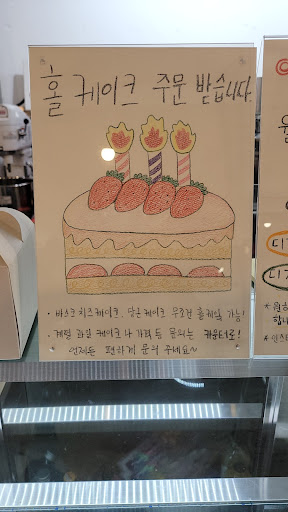 홀 케이크 주문 받습니다.
· 바스크 치즈케이크, 당근케이크 무조건 홀케익 가능!
· 계절 과일 케이크나 가격 등 문의는 카운터로!
언제든 편하게 문의 주세요~